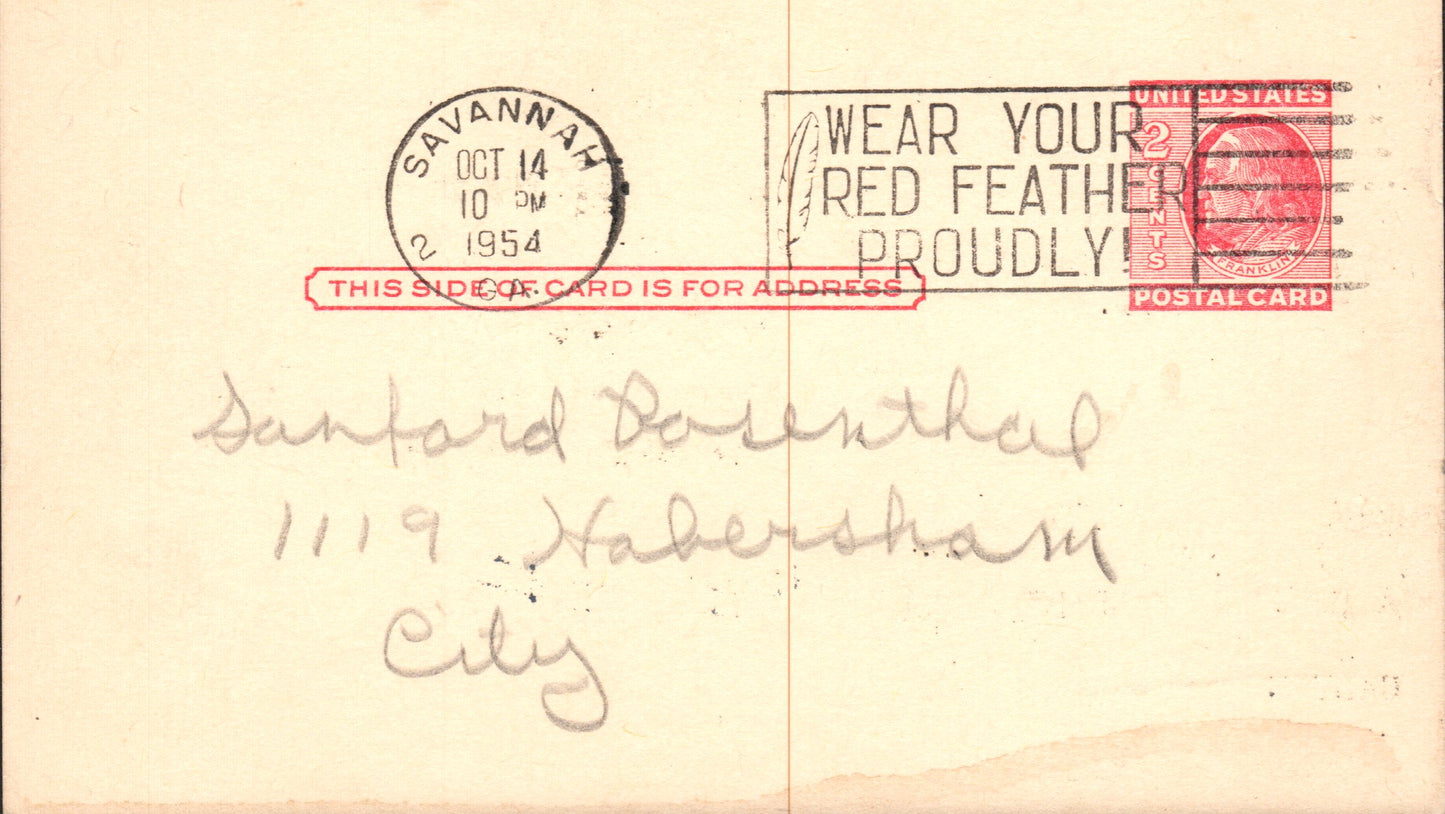 SAVANNAH
OCT 14
10 PM
1954
2
GA.
WEAR YOUR
RED FEATHER
PROUDLY!
UNITED STATES
2 CENTS
FRANKLIN
POSTAL CARD
THIS SIDE OF CARD IS FOR ADDRESS
Sanford Rosenthal
1119 Habersham
City